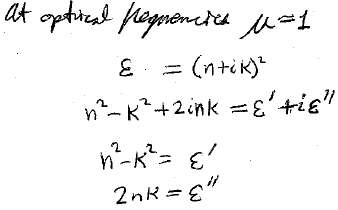 at optical frequencies μ=1
ε = (n+iκ)²
n²-κ²+2inκ = ε'+iε"
n²-κ² = ε'
2nκ = ε"